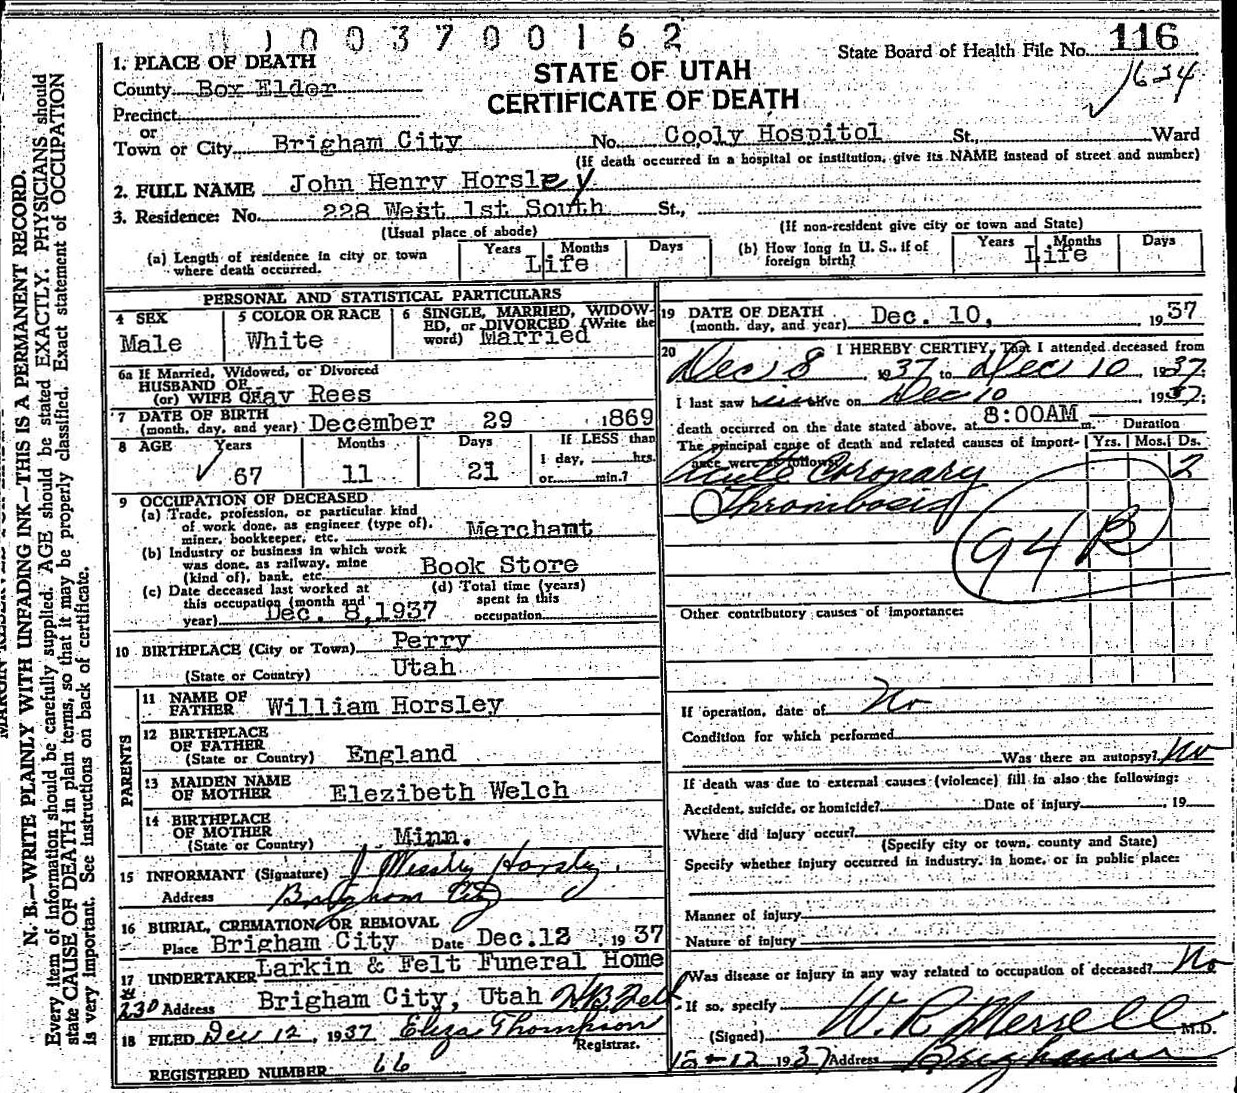 0 1 0 0 3 7 0 0 1 6 2
State Board of Health File No. 116
1634
1. PLACE OF DEATH
STATE OF UTAH
CERTIFICATE OF DEATH
County Box Elder
Precinct
or
Town or City Brigham City No. Cooly Hospitol St., Ward
(If death occurred in a hospital or institution, give its NAME instead of street and number)
2. FULL NAME John Henry Horsley
3. Residence: No. 228 West 1st South St.,
(Usual place of abode) (If non-resident give city or town and State)
(a) Length of residence in city or town where death occurred. Years Months Days Life
(b) How long in U. S., if of foreign birth? Years Months Days Life
PERSONAL AND STATISTICAL PARTICULARS
4 SEX Male
5 COLOR OR RACE White
6 SINGLE, MARRIED, WIDOW-
ED, or DIVORCED (Write the
word) Married
6a If Married, Widowed, or Divorced
HUSBAND OF
(or) WIFE OF Kay Rees
7 DATE OF BIRTH
(month, day, and year) December 29 1869
8 AGE Years Months Days If LESS than
1 day, hrs.
67 11 21 or min.?
9 OCCUPATION OF DECEASED
(a) Trade, profession, or particular kind
of work done, as engineer (type of),
miner, bookkeeper, etc. Merchamt
(b) Industry or business in which work
was done, as railway, mine
(kind of), bank, etc. Book Store
(c) Date deceased last worked at
this occupation (month and
year) Dec. 8, 1937
(d) Total time (years)
spent in this
occupation
10 BIRTHPLACE (City or Town) Perry
(State or Country) Utah
PARENTS
11 NAME OF
FATHER William Horsley
12 BIRTHPLACE
OF FATHER
(State or Country) England
13 MAIDEN NAME
OF MOTHER Elezibeth Welch
14 BIRTHPLACE
OF MOTHER
(State or Country) Minn.
15 INFORMANT (Signature) J Horsley
Address Brigham City
16 BURIAL, CREMATION OR REMOVAL
Place Brigham City Date Dec.12 1937
17 UNDERTAKER Larkin & Felt Funeral Home
#230 Address Brigham City, Utah W.B. Felt
18 FILED Dec 12, 1937 Eliza Thompson
Registrar.
REGISTERED NUMBER 66
19 DATE OF DEATH
(month, day, and year) Dec. 10, 1937
20 I HEREBY CERTIFY, That I attended deceased from
Dec 8 1937 to Dec 10, 1937
I last saw him alive on Dec 10 1937;
death occurred on the date stated above, at 8:00AM m.
The principal cause of death and related causes of import-
ance were as follows:
Duration
Yrs. Mos. Ds.
Acute Coronary 2
Thrombosis
94B
Other contributory causes of importance:
If operation, date of No
Condition for which performed
Was there an autopsy? No
If death was due to external causes (violence) fill in also the following:
Accident, suicide, or homicide? Date of injury , 19
Where did injury occur?
(Specify city or town, county and State)
Specify whether injury occurred in industry, in home, or in public place:
Manner of injury
Nature of injury
Was disease or injury in any way related to occupation of deceased? No
If so, specify
(Signed) W. R. Merrell M.D.
12-12 1937 Address Brigham
N. B.—WRITE PLAINLY WITH UNFADING INK—THIS IS A PERMANENT RECORD.
Every item of information should be carefully supplied. AGE should be stated EXACTLY. PHYSICIANS should
state CAUSE OF DEATH in plain terms, so that it may be properly classified. Exact statement of OCCUPATION
is very important. See instructions on back of certificate.